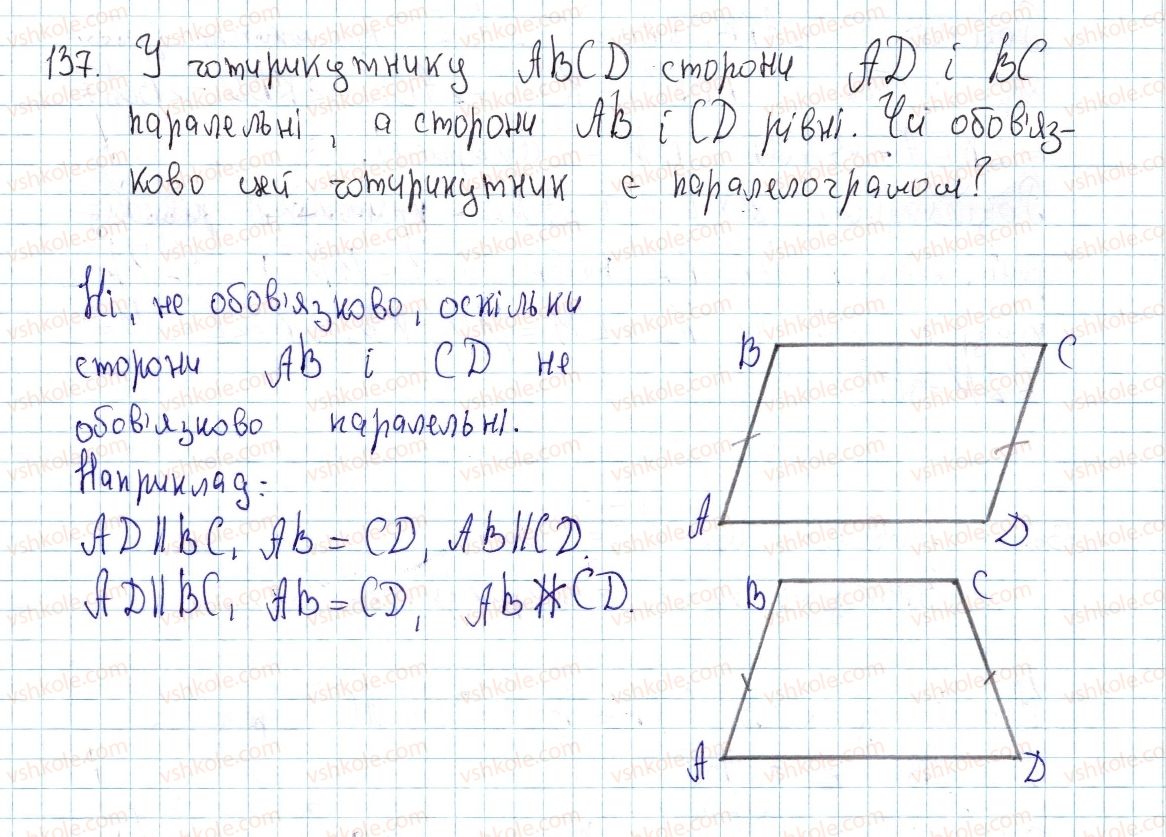 137. У чотирикутнику ABCD сторони AD і BC
паралельні, а сторони AB і CD рівні. Чи обов'яз-
ково цей чотирикутник є паралелограмом?
Ні, не обов'язково, оскільки
сторони AB і CD не
обов'язково паралельні.
Наприклад:
AD||BC, AB = CD, AB||CD.
AD||BC, AB = CD, AB∦CD.
B C
A D
B C
A D
vshkole.com